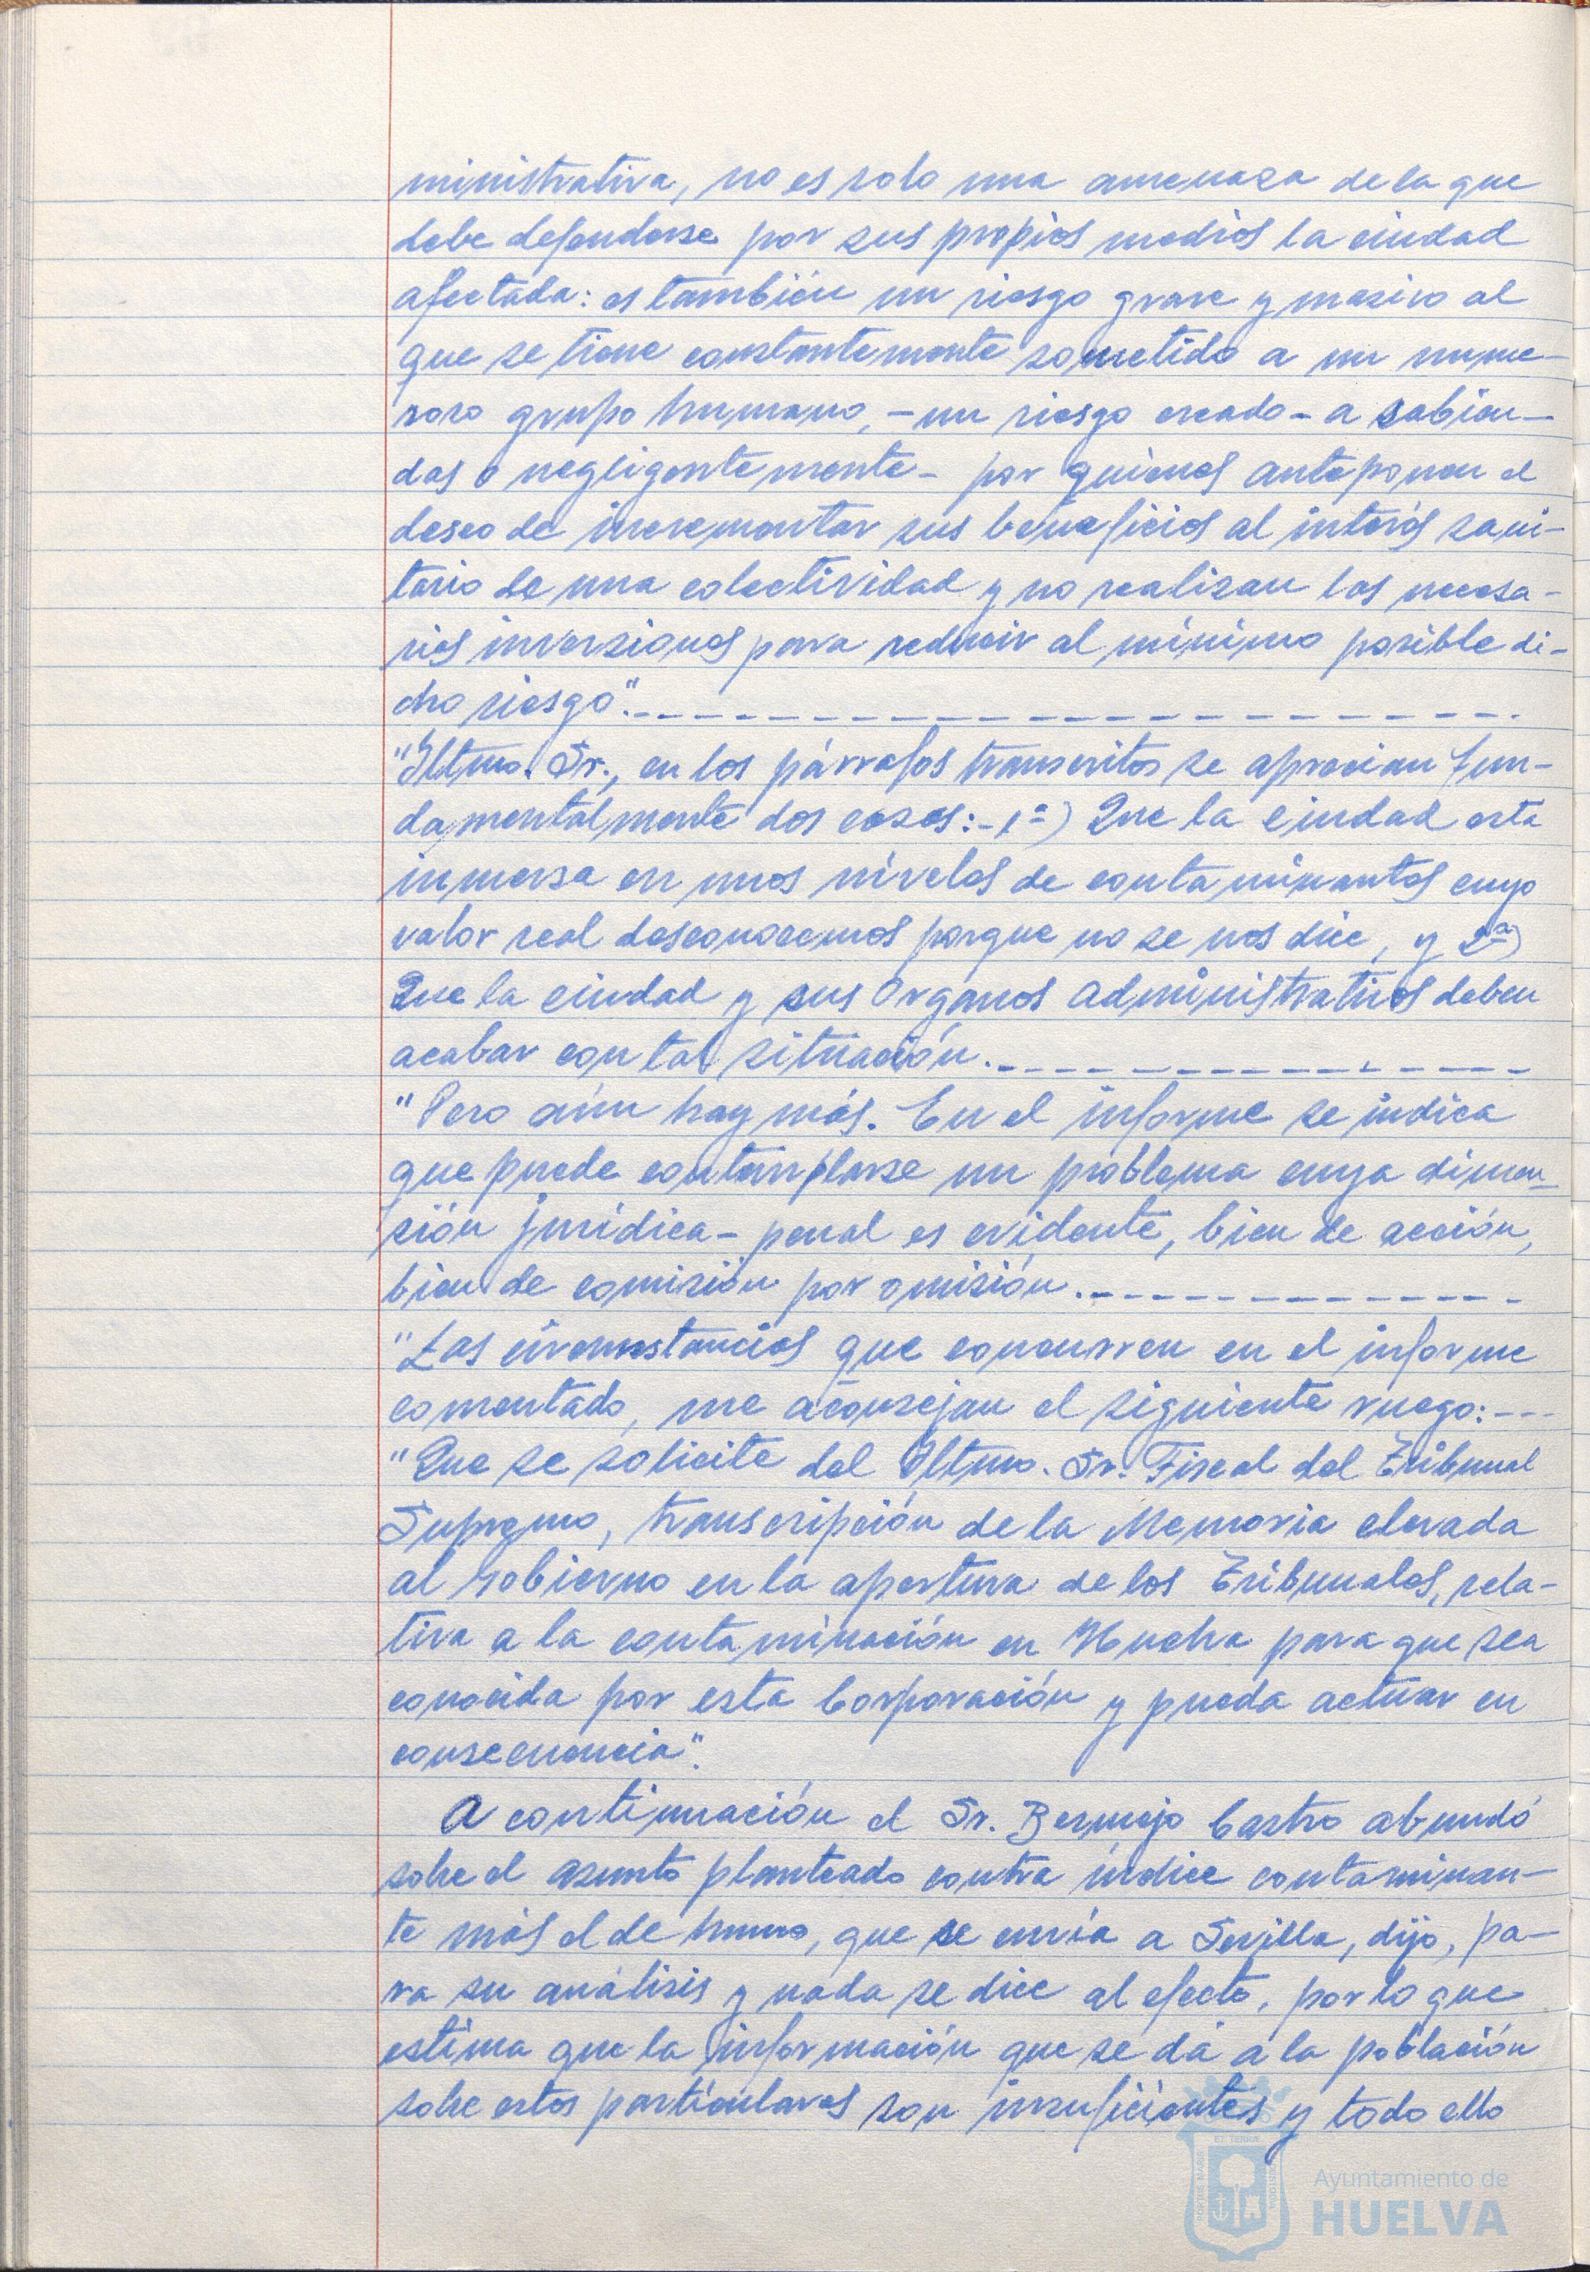 ministrativa, no es solo una amenaza de la que
debe defenderse por sus propios medios la ciudad
afectada: es también un riesgo grave y masivo al
que se tiene constantemente sometido a un nume-
roso grupo humano, - un riesgo creado - a sabien-
das o negligentemente - por quienes anteponen el
deseo de incrementar sus beneficios al interés sani-
tario de una colectividad y no realizan las necesa-
rias inversiones para reducir al mínimo posible di-
cho riesgo".
"Iltmo. Sr., en los párrafos transcritos se aprecian fun-
damentalmente dos cosas:- 1ª) Que la ciudad esta
inmersa en unos niveles de contaminantes cuyo
valor real desconocemos porque no se nos dice, y 2ª)
Que la ciudad y sus Organos administrativos deben
acabar con tal situación.
"Pero aún hay más. En el informe se indica
que puede contemplarse un problema cuya dimen-
sión jurídica - penal es evidente, bien de acción,
bien de comisión por omisión.
"Las circunstancias que concurren en el informe
comentado, me aconsejan el siguiente ruego:---
"Que se solicite del Iltmo. Sr. Fiscal del Tribunal
Supremo, transcripción de la Memoria elevada
al Gobierno en la apertura de los Tribunales, rela-
tiva a la contaminación en Huelva para que sea
conocida por esta Corporación y pueda actuar en
consecuencia".
A continuación el Sr. Bermejo Castro abundó
sobre el asunto planteado contra índice contaminan-
te más el de humo, que se envía a Sevilla, dijo, pa-
ra su análisis y nada se dice al efecto, por lo que
estima que la información que se dá a la población
sobre estos particulares son insuficientes y todo ello
Ayuntamiento de
HUELVA